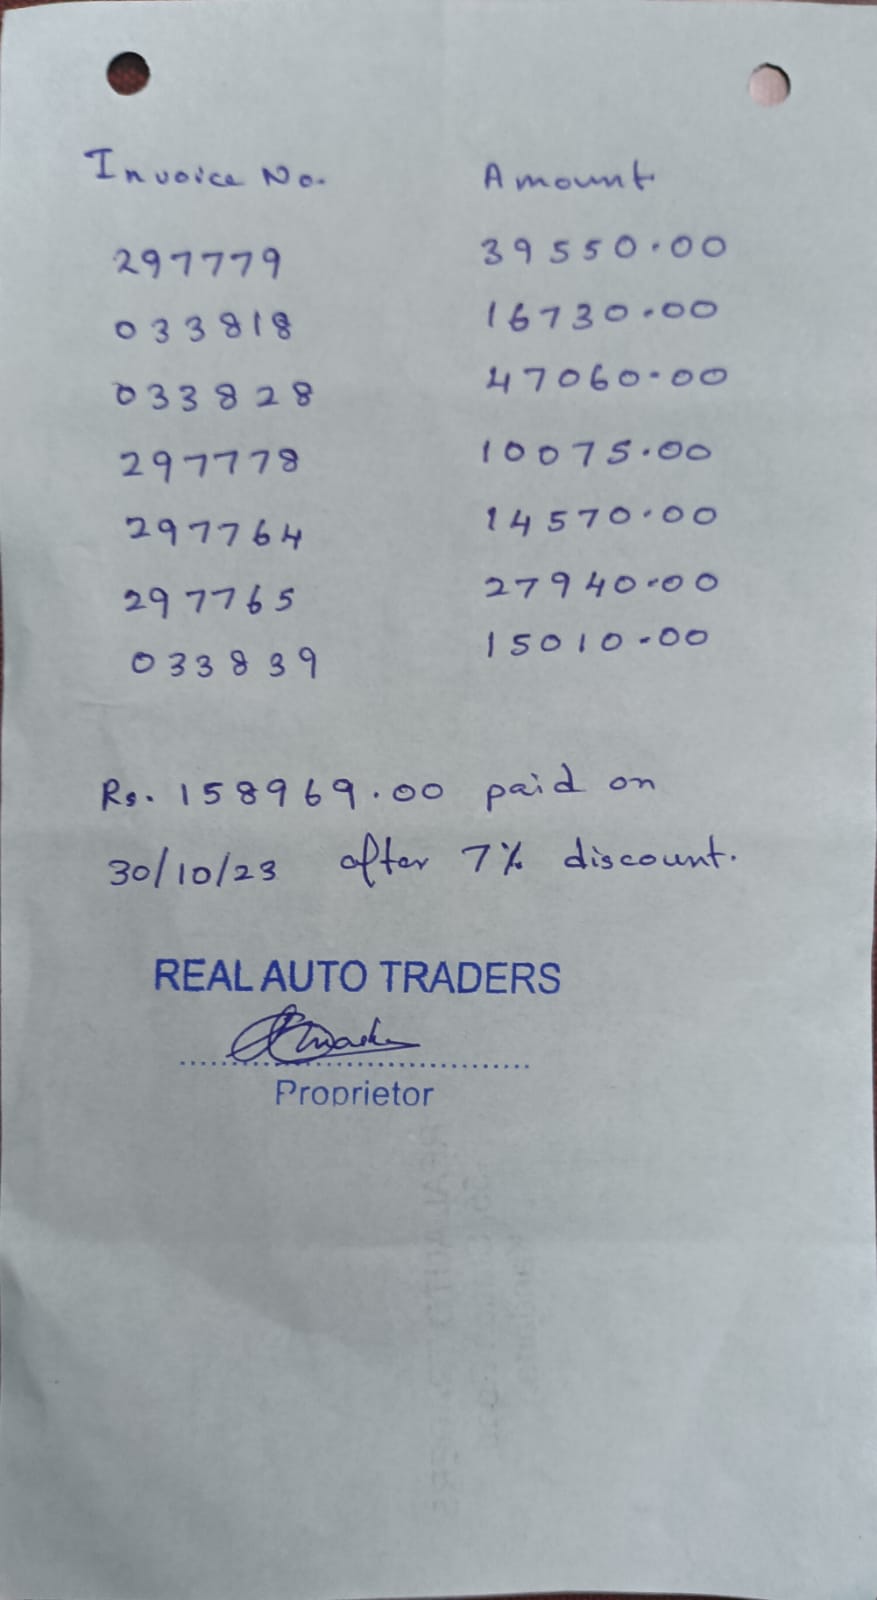 Invoice No. Amount.
297779 39550.00
033818 16730.00
033828 47060-00
297778 10075.00
297764 14570.00
297765 27940.00
033839 15010-00
Rs. 158969.00 paid on
30/10/23 after 7% discount.
REAL AUTO TRADERS
Proprietor